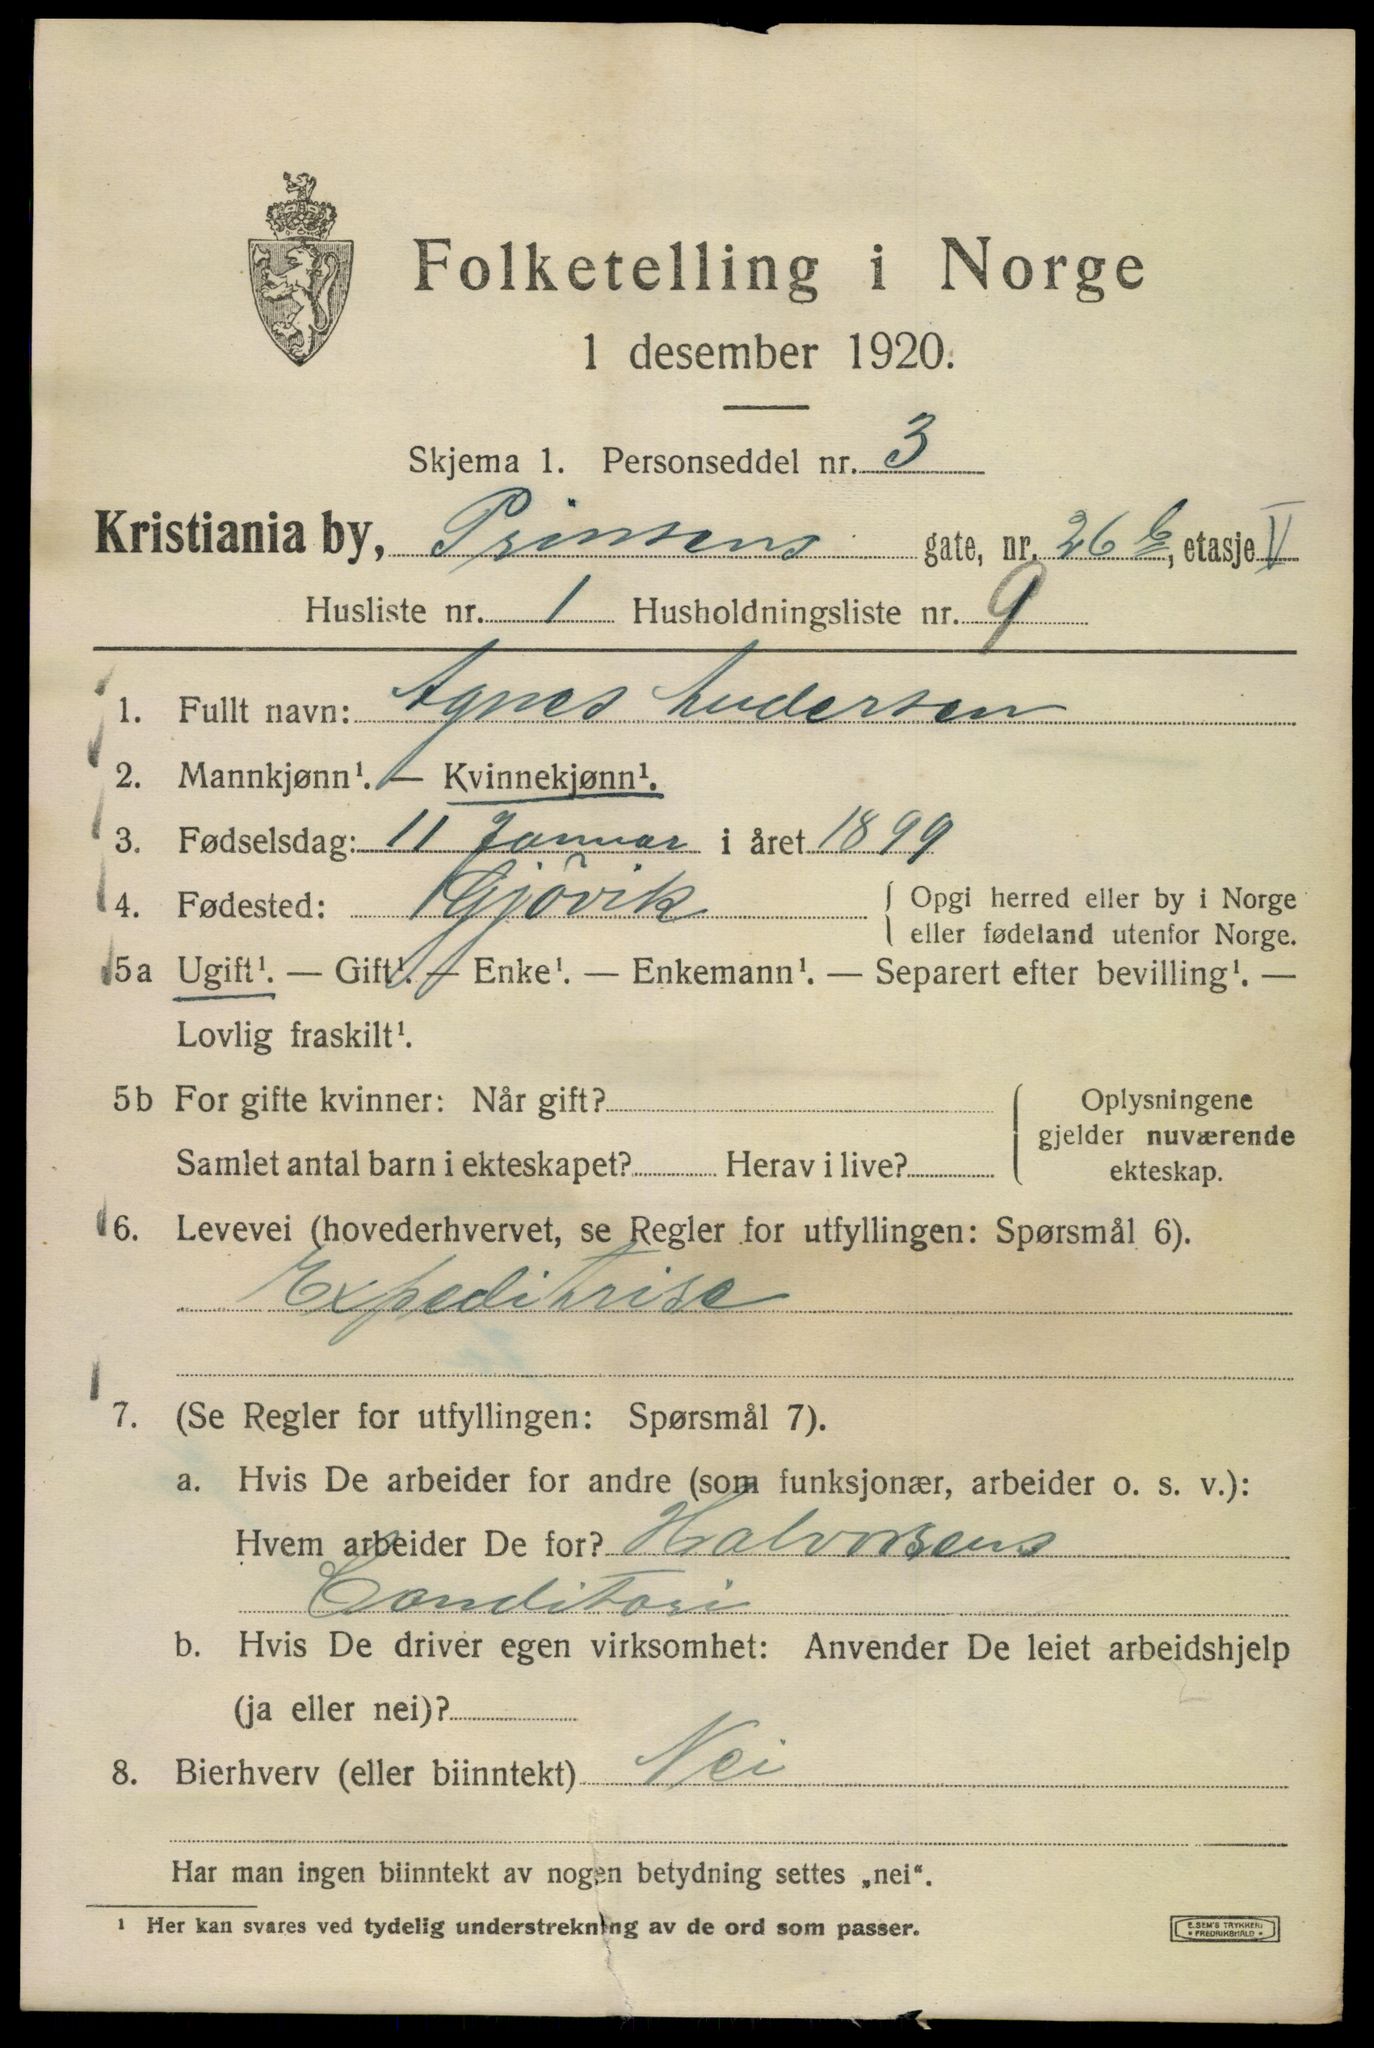 Folketelling i Norge
1 desember 1920.
Skjema 1. Personseddel nr. 3
Kristiania by, Prinsens gate, nr. 26 b, etasje V
Husliste nr. 1 Husholdningsliste nr. 9
1. Fullt navn: Agnes Andersen
2. Mannkjønn¹. — Kvinnekjønn¹.
3. Fødselsdag: 11 Januar i året 1899
4. Fødested: Gjövik { Opgi herred eller by i Norge
eller fødeland utenfor Norge.
5a Ugift¹. — Gift¹. — Enke¹. — Enkemann¹. — Separert efter bevilling¹. —
Lovlig fraskilt¹.
5b For gifte kvinner: Når gift? { Oplysningene
gjelder nuværende
Samlet antal barn i ekteskapet? Herav i live?
ekteskap.
6. Levevei (hovederhvervet, se Regler for utfyllingen: Spørsmål 6).
Expeditrise
7. (Se Regler for utfyllingen: Spørsmål 7).
a. Hvis De arbeider for andre (som funksjonær, arbeider o. s. v.):
Hvem arbeider De for? Halvorsens
Conditori
b. Hvis De driver egen virksomhet: Anvender De leiet arbeidshjelp
(ja eller nei)?
8. Bierhverv (eller biinntekt) Nei
Har man ingen biinntekt av nogen betydning settes „nei“.
¹ Her kan svares ved tydelig understrekning av de ord som passer.
E. SEM'S TRYKKERI
• FREDRIKSHALD •